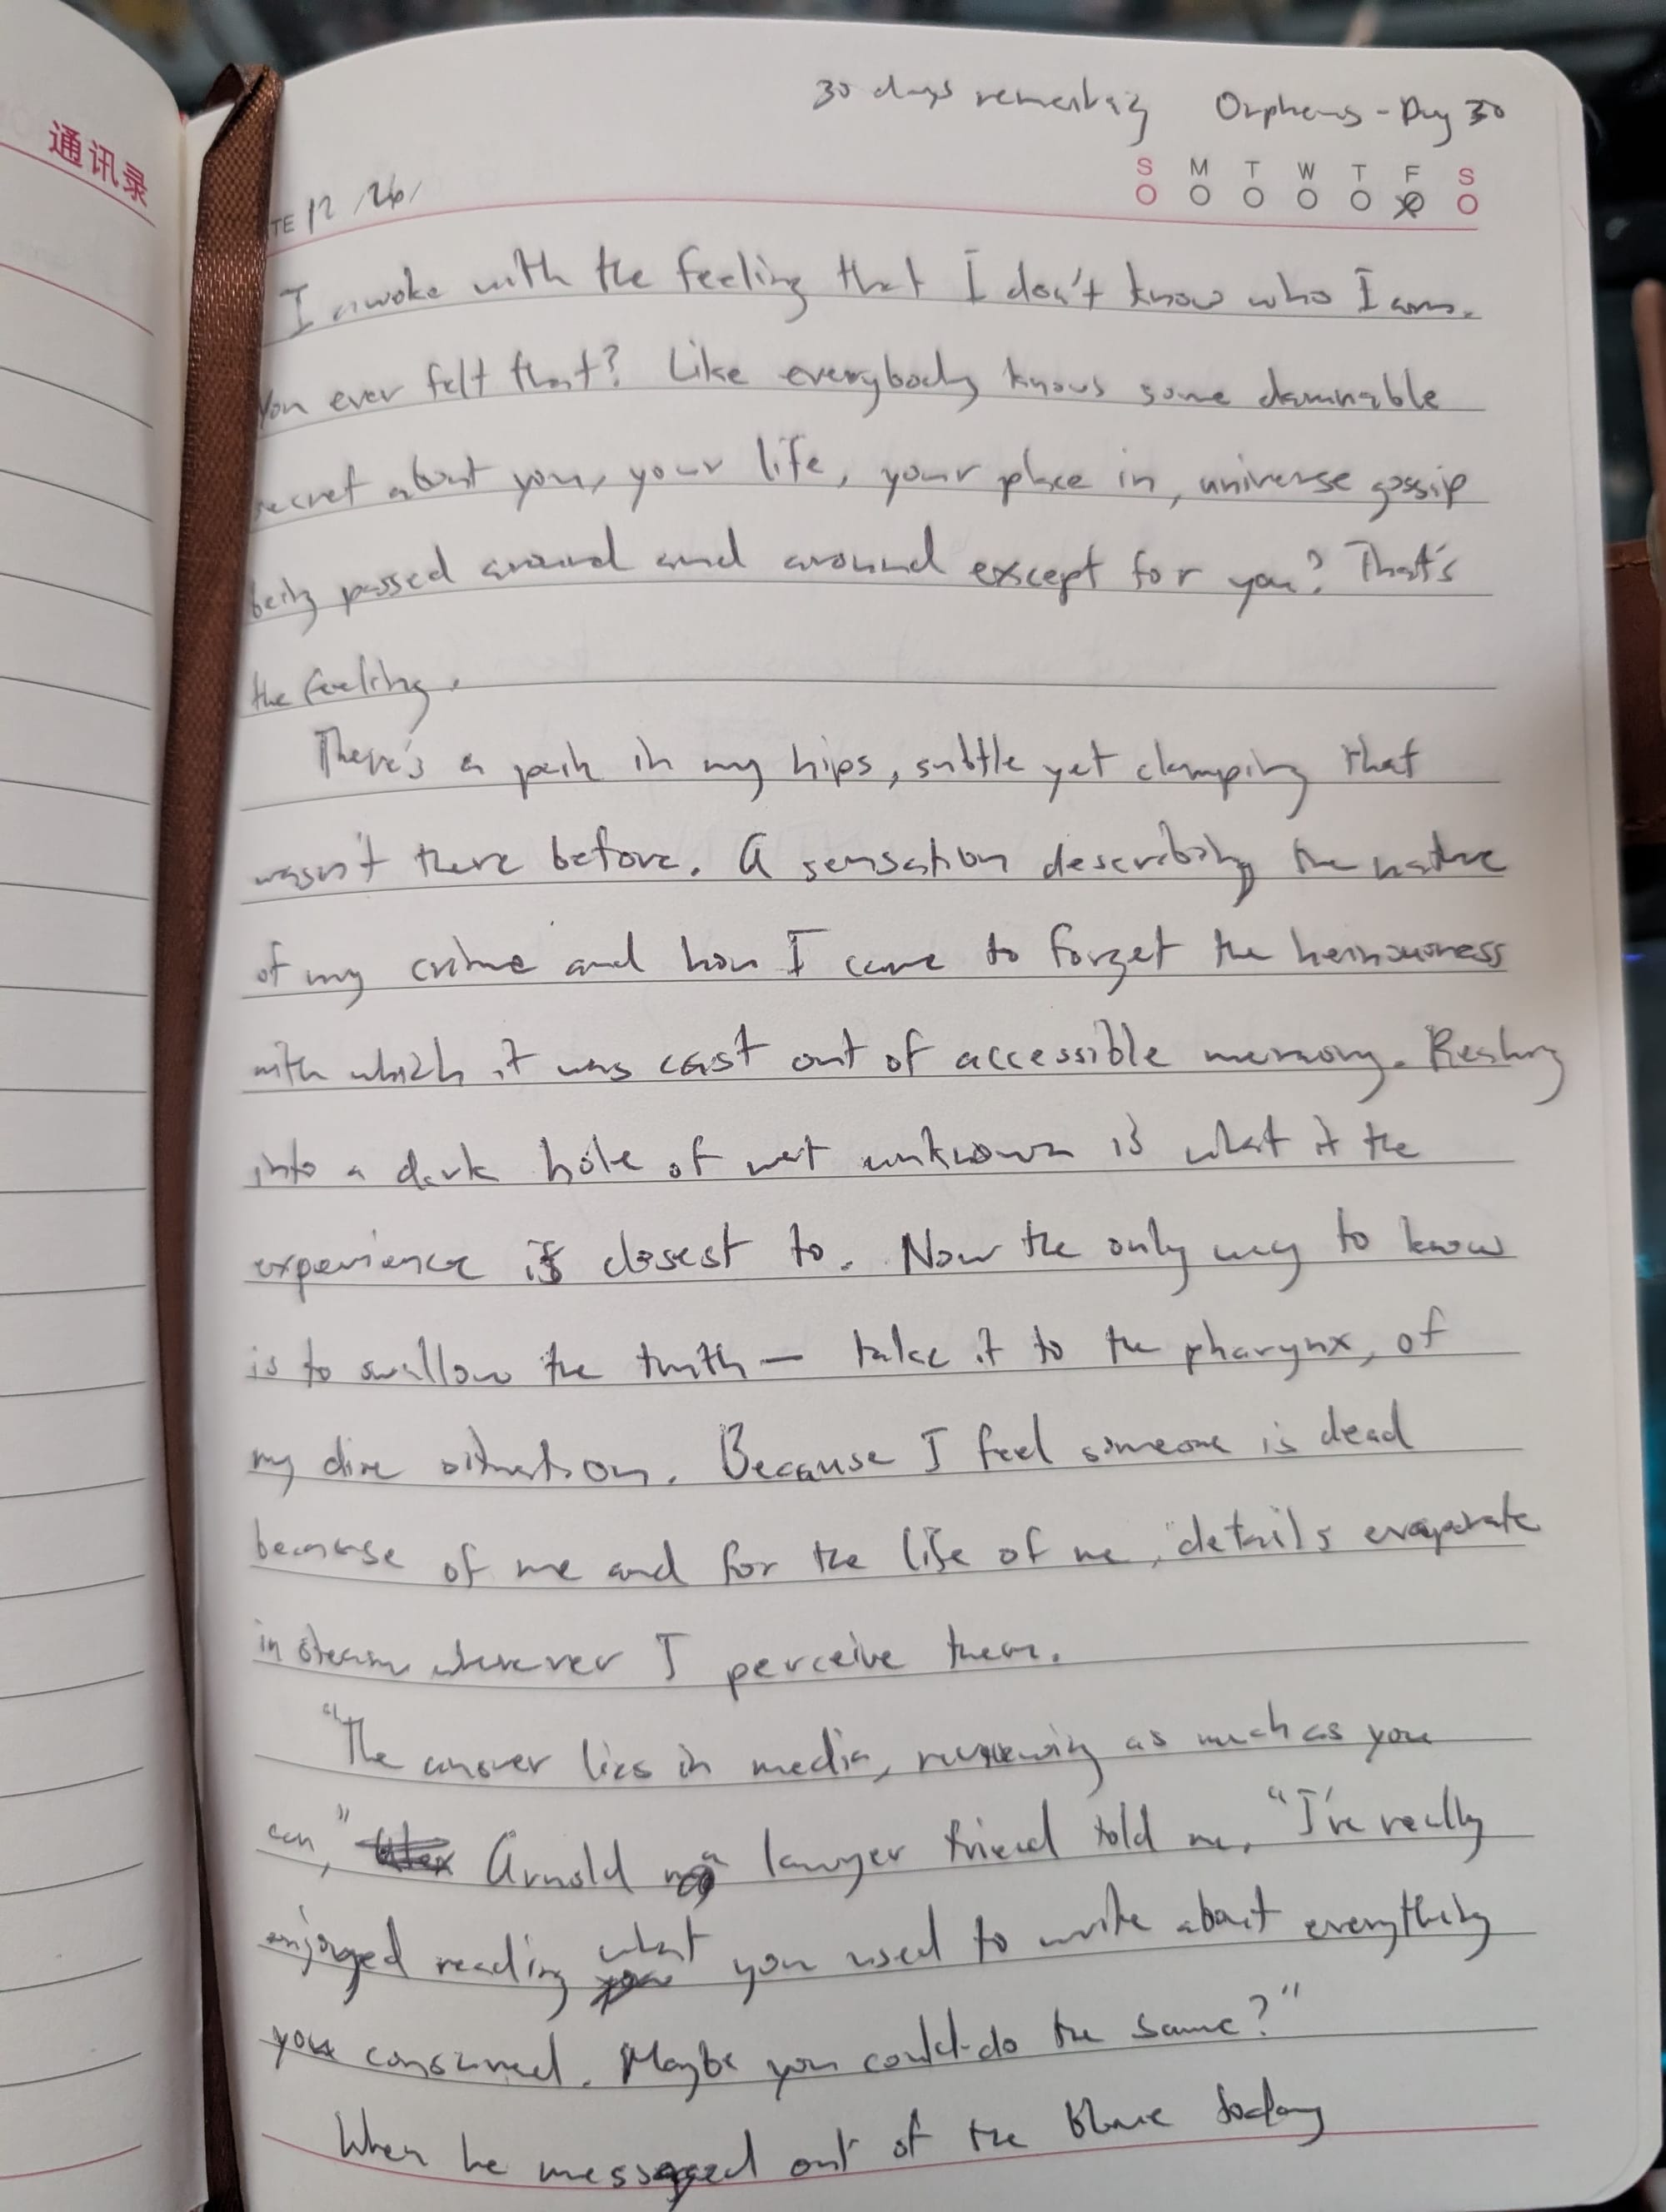 通讯录
30 days remaining Orpheus - Day 30
S M T W T F S
TE 12/26/
I awoke with the feeling that I don't know who I am.
You ever felt that? Like everybody knows some damnable
secret about you, your life, your place in, universe gossip
being passed around and around except for you? That's
the feeling.
There's a pain in my hips, subtle yet clamping that
wasn't there before. A sensation describing the nature
of my crime and how I came to forget the heinousness
with which it was cast out of accessible memory.
into a dark hole of wet unknown is what it the
experience is closest to. Now the only way to know
is to swallow the truth — take it to the pharynx, of
my dire situation. Because I feel someone is dead
because of me and for the life of me, details evaporate
in steam wherever I perceive them.
"The answer lies in media, reviewing as much as you
can," Arnold a lawyer friend told me, "I've really
enjoyed reading what you used to write about everything
you consumed. Maybe you could do the same?"
When he messaged out of the blue today